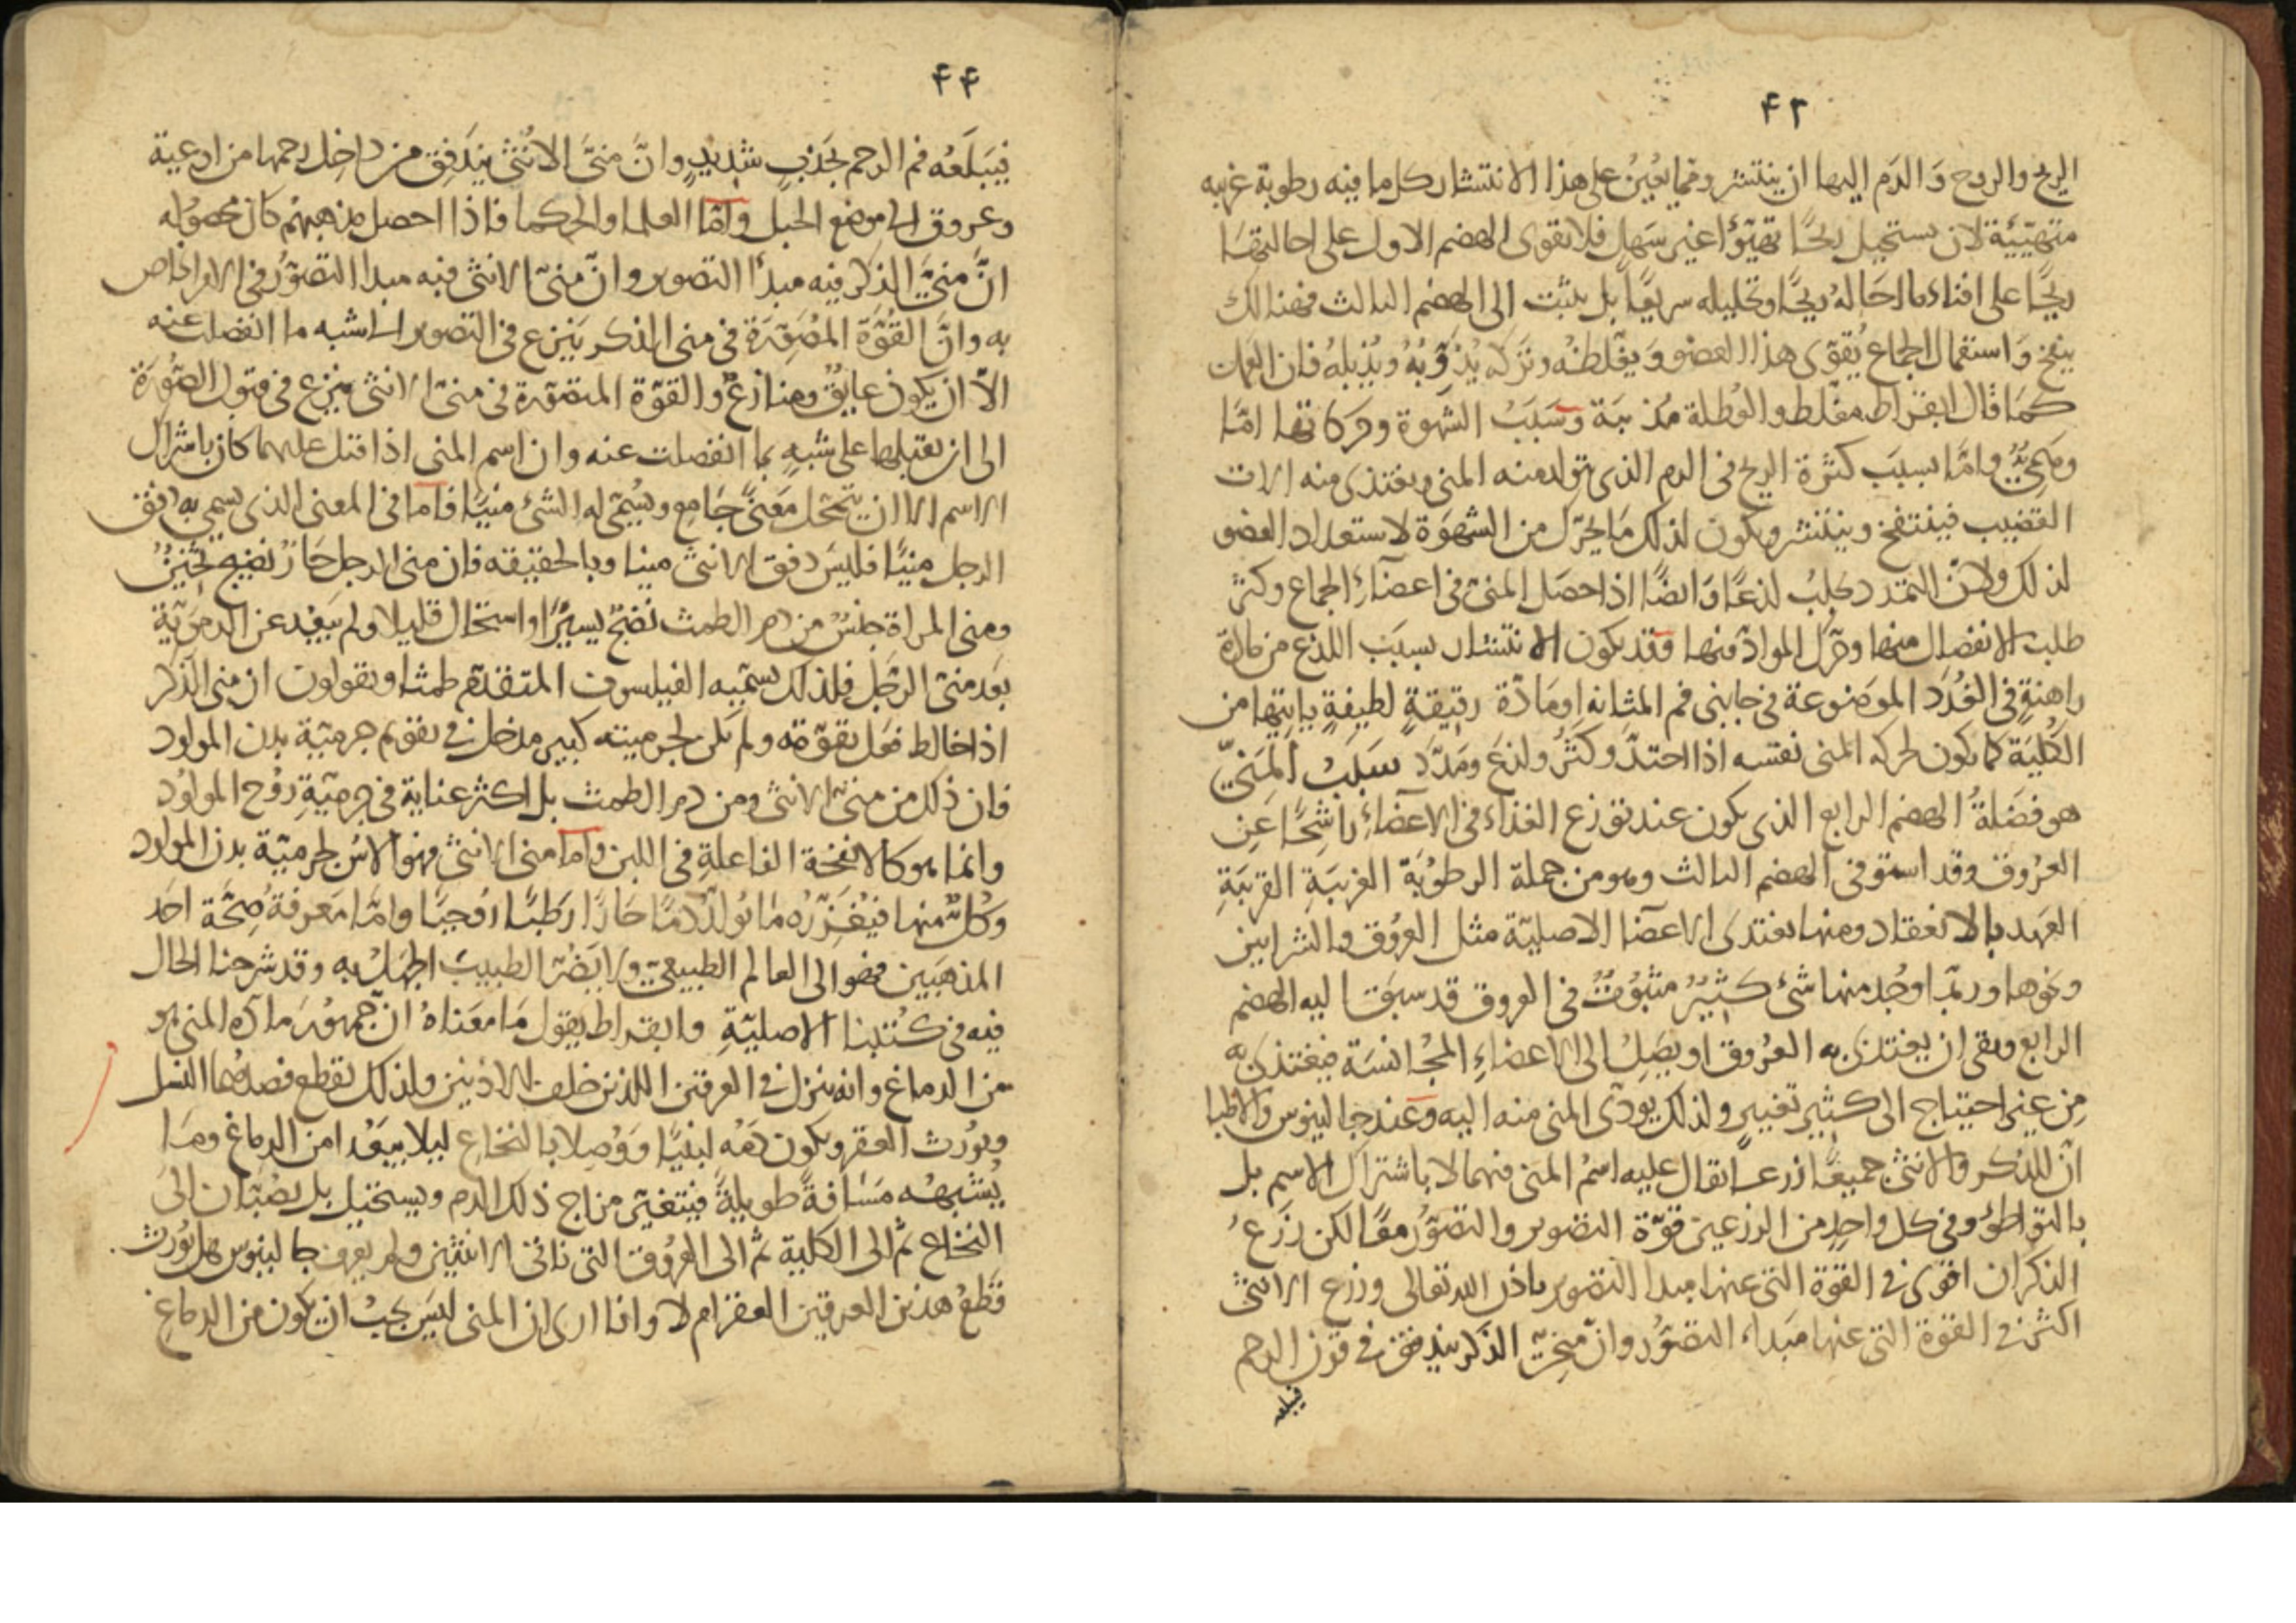 ۴۳
الريح والروح وَ الدَم اليها ان ينتشر ومما يُعينُ على هذا الانتشار كل ما فيه رطوبة غريبه
متهيّيئة لان يستحيل ريحًا تهيّؤًا غير سَهلٍ فلا يقوى الهضم الاول على احالتِهَا
ريحًا على افناء ما احَالهُ ريحًا وتحليله سريعًا بل يلبث الى الهضم الثالث فهنالك
ينفخ وَ استعمال الجماع يُقوّى هذا العضو وَ يغلّظهُ وتَركه يُذوّبُهُ ويُذبِلهُ فان العمل
كمَا قال ابقراط مغلّظ والعُطلة مُذيبَة وسَبَبُ الشهوة وحركاتها امّا
وهَمِيٌّ واما بسبب كثرة الريح فى الدم الذى يتولد منه المنى ويغتذى منه الات
القضيب فينتفخ وينتشر ويكون لذلك مَا يحرّك من الشهوَة لاستعداد العضو
لذلك ولانّ التمدد يجلبُ لذعًا وَايضًا اذا حصَل المنى فى اعضَآءِ الجماع وكثر
طلبت الانفصال منها وحرّك الموادّ فيها وقد يكون الانتشار بسبَب اللذع من مادة
راهنةٍ فى الغُدَد الموضوعة فى جانبى فم المثانه او مَادّة رقيقةٍ لطيفةٍ ياتيها من
الكُليَة كما يكون لحركة المنى نفسه اذا احتدّ وكثُر ولذعَ ومَدّدَ سبَبُ المَنِيّ
هو فضَلةُ الهضم الرابع الذى يكون عند توزع الغذاء فى الاعضَآءِ راشِحًا عَنِ
العرُوق وقد استوفى الهضم الثالث وهو من جملة الرطوبَة الغريبَةِ القريبَةِ
العهد بالانعقاد ومنها يغتدى الاعضا الاصليّة مثل العرُوق والشرايين
ونحوها وربّما وُجد منها شئ كثيرٌ مبثوُثٌ فى العروق قد سبَق اليه الهضم
الرابع وبقى ان يغتذى به العرُوق او يصِلُ الى الاعضاءِ المجُانسَة فيغتذى به
مِن غير احتياج الى كثير تغيير ولذلك يودّى المنى منه اليه وعند جالينوس والاطبا
انّ للذكر والانثى جميعًا زرعًا يقال عليه اسمُ المنى فيهما لا باشتراك الاسم بل
بالتواطؤ وفى كل واحدٍ من الزرعين قوّة التصوير والتصوّر معًا لكن زَرعُ
الذكران اقوى فى القوّة التى عنها مبدا التصوير باذن الله تعالى وزرع الانثى
اكثر فى القوة التى عنها مَبداء التصوّر وانّ مَنِيّ الذكر يندفق فى قرن الرحم
فيبلعه
۴۴
فيَبلَعُه فم الرحم بجَذبٍ شَديدٍ وانَّ منىَّ الانُثى يندَفِق من داخِل رحمها من اوعية
وعروق الى موضع الحبل وامّا العلما والحكما فاذا احصل مذهبهم كان محصوله
انَّ منىَّ الذكر فيه مبدأ التصوير وانّ منىّ الانثى فيه مبدا التصوّر فى الامر الخاص
به وانَّ القُوَّة المُصَوِّرَةَ فى منى الذكر يَنزع فى التصوير الى شبه ما انفصلت عنه
الاّ ان يكون عايقٌ ومنازعٌ والقوّة المتصوّرة فى منىّ الانثى ينزع فى قبول الصُّورَة
الى ان يقبلها على شَبهٍ بما انفصلت عنه وان اسم المنى اذا قيل عليهما كان باشتراك
الاسم الا ان يتمحّل مَعنىً جَامع ويُسمّى له الشئ منيًا فاما فى المعنى الذى يسمى به دفق
الرجل منيًا فليسَ دفق الانثى منيا وبالحقيقه فان منى الرجل حَارّ نضيج ثخينٌ
ومنى المراة جنسٌ من دم الطمث نضَجَ يسيرًا واستحال قليلا ولم يَبعُد عن الدمَويّة
بُعد منىّ الرجُل فلذلك يسمّيه الفيلسوف المتقدّم طمثا ويقولون ان منى الذكر
اذا خالط فعَل بقوّته ولم يكن لجرميته كبير مدخل فى تقويم جرميّة بدن المولود
فان ذلك من منى الانثى ومن دم الطمث بل اكثر عناية فى جرميّةِ روُح المولوُد
وانما هو كالانفحة الفاعلةِ فى اللبن واما منى الانثى فهو الاسُّ لجرميّة بدن المولود
وكُلٌّ منها فيُغَزِّرُه مَا يُولّدُ دَمًا حَارًّا رَطبًا رُوحيًّا وامّا مَعرفة صِحّة احَد
المذهَبَين فهو الى العالم الطبيعىّ ولا يَضُرّ الطبيبَ الجهَلُ به وقد شرحنا الحال
فيه فى كُتُبنا الاصليّةِ وابقراط يقول مَا معَناهُ انّ جُمهوُرَ مادّة المنى هو
من الدماغ وانه ينزل فى العرقين اللذين خلف الاذنين ولذلك يقطع فصدهُما النسل
ويُورث العقر ويكون دَمُه لبنيًا وَوُصِلا بالنخاع ليلا يبعُدا من الدماغ ومَا
يُشبهُه مَسَافةً طويلةً فيتغيّر مزاج ذلك الدم ويستحيل بل يصُبّان الى
النخاع ثم الى الكلية ثم الى العرُوق التى تاتى الانثيين ولم يعرف جالينوس هل يُورث
قَطعُ هذين العرقين العقر ام لا وانا ارى ان المنى ليسَ يجبُ ان يكون من الدماغ